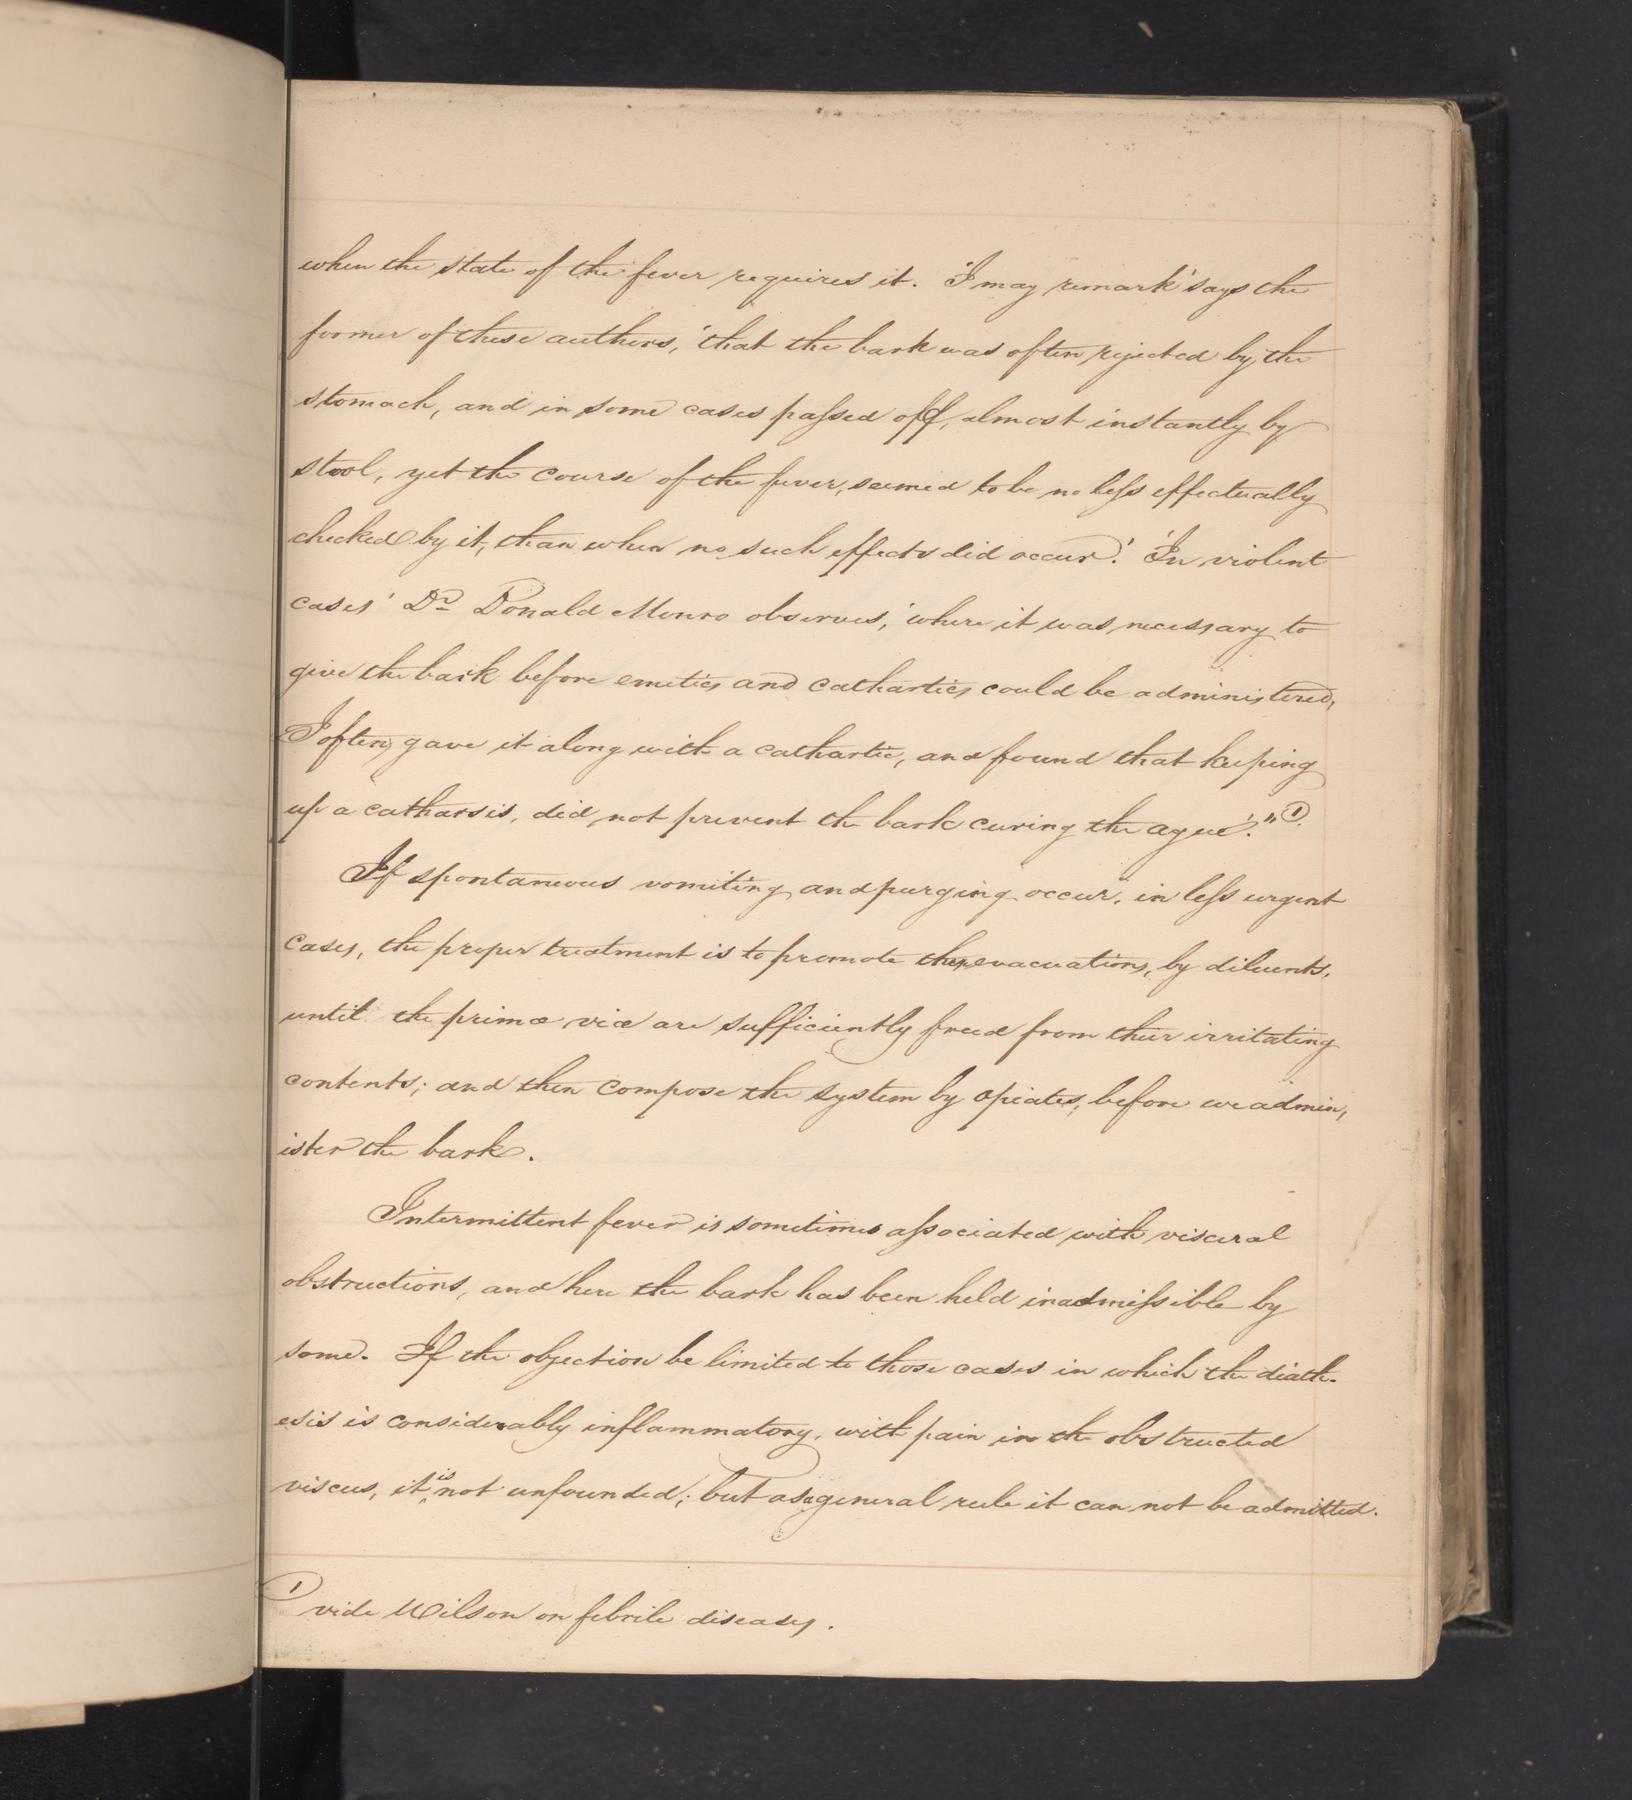 when the state of the fever requires it. 'I may remark' says the
former of these authors, 'that the bark was often rejected by the
stomach, and in some cases passed off, almost instantly by
stool, yet the course of the fever, seemed to be no less effectually
checked by it, than when no such effects did occur.' 'In violent
cases' Dr Donald Monro observes, 'where it was necessary to
give the bark before emetics and cathartics could be administered,
I often gave it along with a cathartic, and found that keeping
up a catharsis, did not prevent the bark curing the ague.'" 1
If spontaneous vomiting and purging occur, in less urgent
cases, the proper treatment is to promote these evacuations, by diluents,
until the primæ viæ are sufficiently freed from their irritating
contents; and then compose the system by opiates, before we admin,
ister the bark.
Intermittent fever is sometimes associated with visceral
obstructions, and here the bark has been held inadmissible by
some. If the objection be limited to those cases in which the diath-
esis is considerably inflammatory, with pain in the obstructed
viscus, it is not unfounded; but as a general rule it can not be admitted.
1 vide Wilson on febrile diseases.